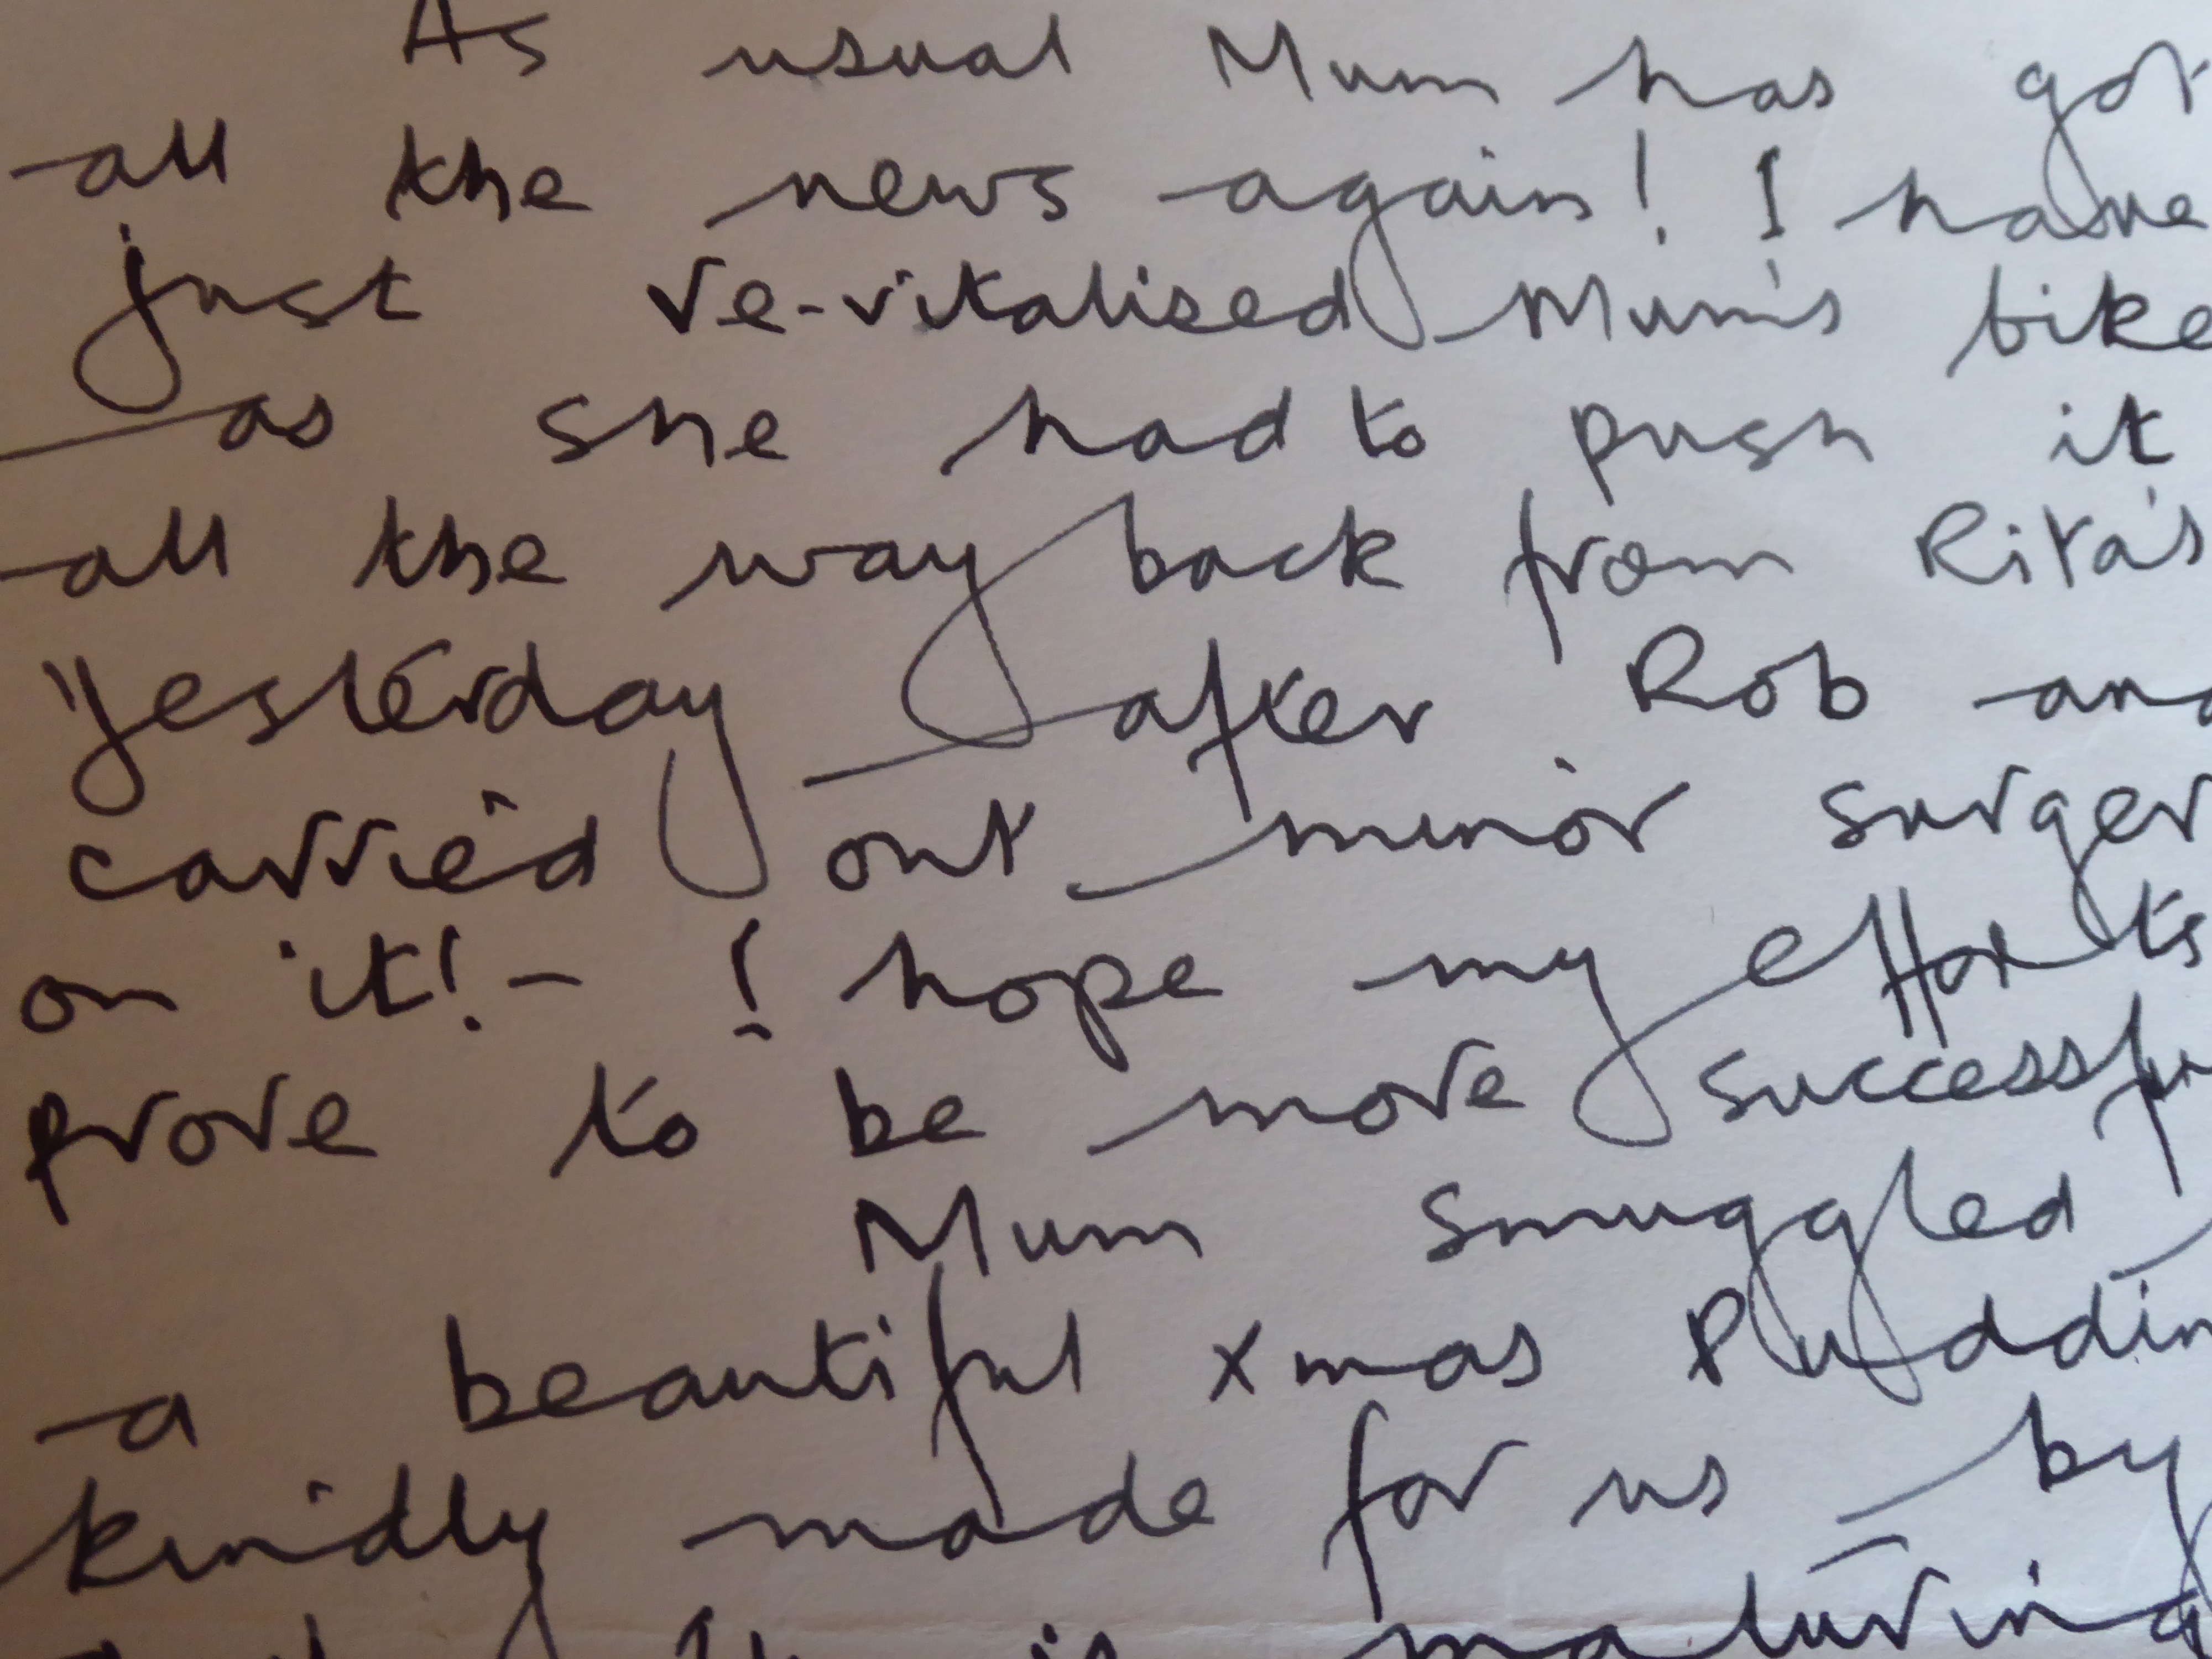 As usual Mum has got
all the news again! I have
just re-vitalised Mum's bike
as she had to push it
all the way back from Rita's
yesterday after Rob and
carried out minor surger
on it! - I hope my efforts
prove to be more successfu
Mum smuggled
a beautiful xmas Puddin
kindly made for us by
is maturing